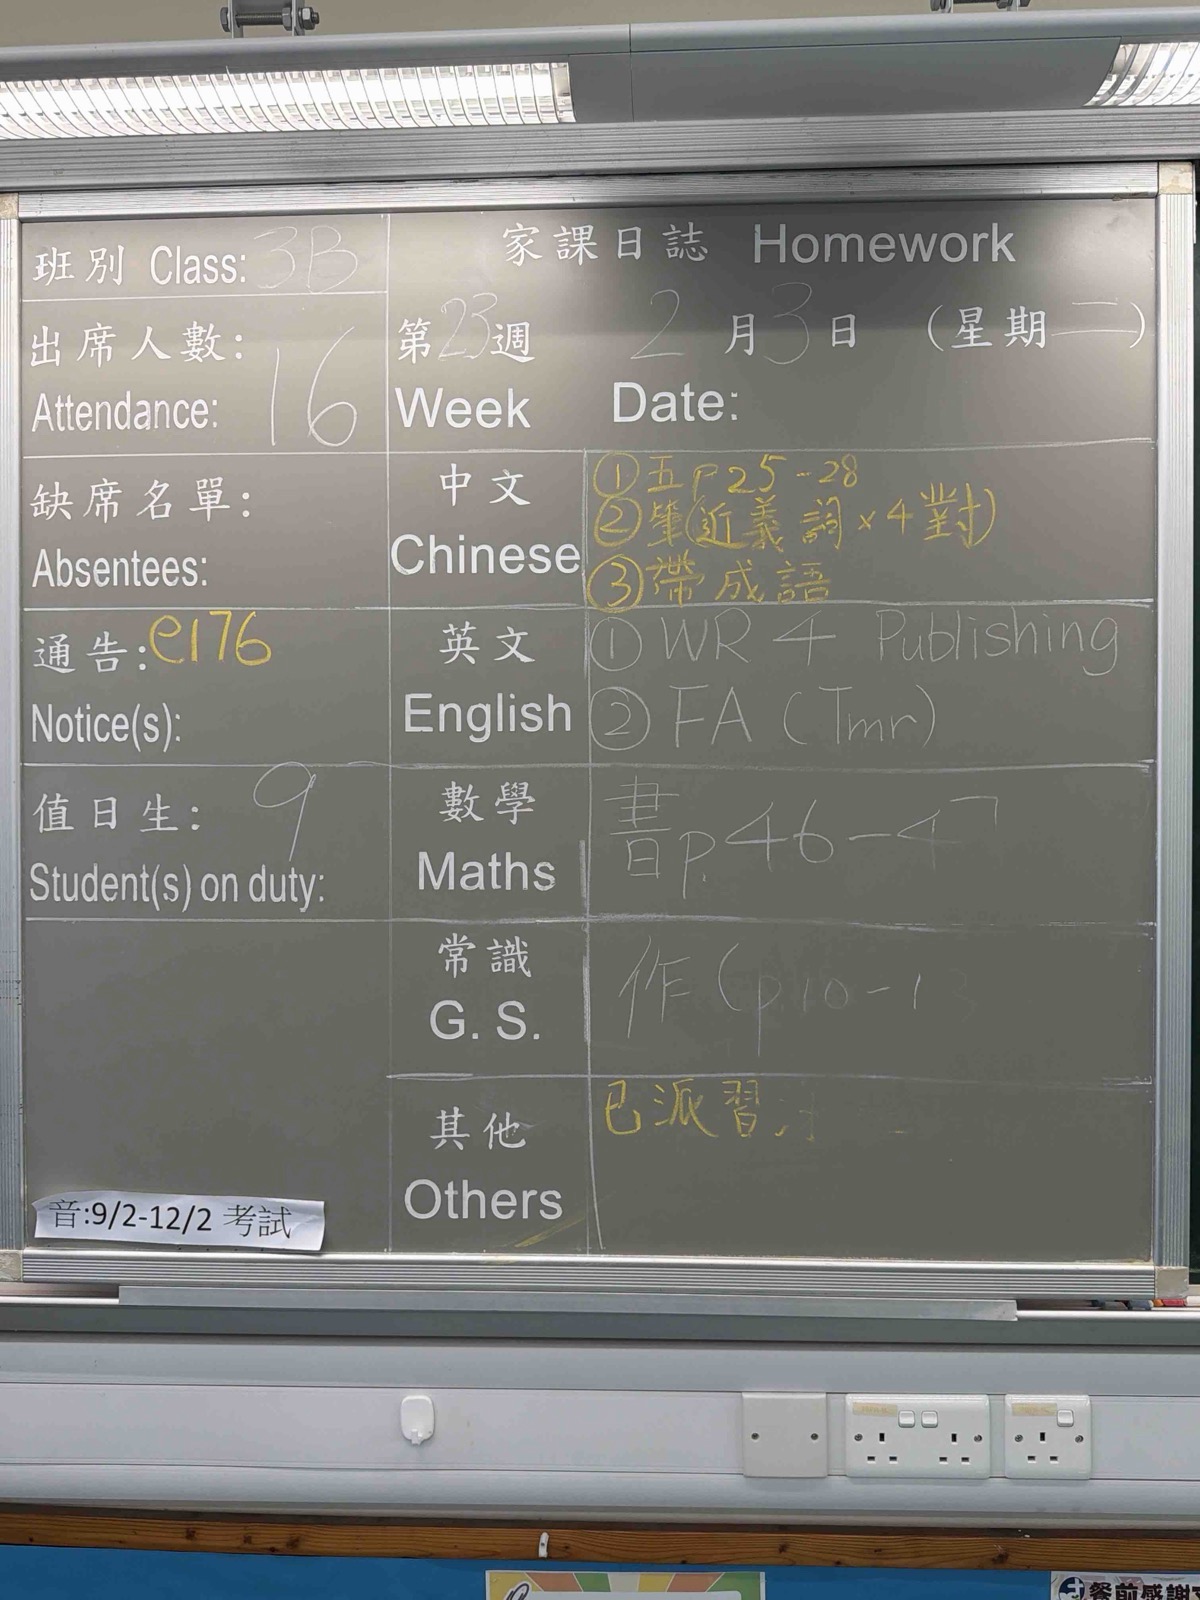 班別 Class: 3B
家課日誌 Homework
出席人數: 16
Attendance:
第23週 2月3日 (星期二)
Week Date:
缺席名單:
Absentees:
中文
Chinese
①五p25-28
②(近義詞×4對)
③帶成語
通告:e176
Notice(s):
英文
English
①WR 4 Publishing
②FA (Tmr)
值日生: 9
Student(s) on duty:
數學
Maths
書p.46-47
常識
G. S.
作(p.10-13
其他
Others
已派習
音:9/2-12/2 考試
餐前感謝